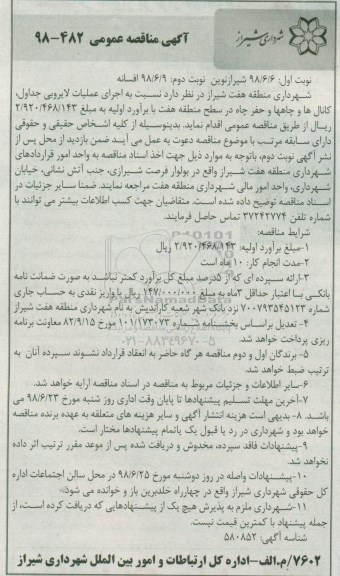 شهرداری شیراز
آگهی مناقصه عمومی ۴۸۲-۹۸
نوبت اول: ۹۸/۶/۶ شیرازنوین نوبت دوم: ۹۸/۶/۹ افسانه
شهرداری منطقه هفت شیراز در نظر دارد نسبت به اجرای عملیات لایروبی جداول،
کانال ها و چاهها و حفر چاه در سطح منطقه هفت با برآورد اولیه به مبلغ ۲/۹۲۰/۴۶۸/۱۴۳
ریال از طریق مناقصه عمومی اقدام نماید. بدینوسیله از کلیه اشخاص حقیقی و حقوقی
دارای سابقه مرتب با موضوع مناقصه دعوت به عمل می آید ضمن بازدید از محل پس از
نشر آگهی نوبت دوم، باتوجه به موارد ذیل جهت اخذ اسناد مناقصه به واحد امور قراردادهای
شهرداری منطقه هفت شیراز واقع در بولوار فرصت شیرازی، جنب آتش نشانی، خیابان
شهرداری، واحد امور مالی شهرداری منطقه هفت مراجعه نمایند. ضمنا سایر جزئیات در
اسناد مناقصه توضیح داده شده است. متقاضیان جهت کسب اطلاعات بیشتر می توانند با
شماره تلفن ۳۷۲۴۲۷۷۴ تماس حاصل فرمایند.
شرایط مناقصه:
۱-مبلغ برآورد اولیه: ۲/۹۲۰/۴۶۸/۱۴۳ ریال
۲-مدت انجام کار: ۱۰ ماه است
۳-ارائه سپرده ای که از ۵درصد مبلغ کل برآورد کمتر نباشد به صورت ضمانت نامه
بانکی با اعتبار حداقل ۳ماه به مبلغ ۱۴۷/۰۰۰/۰۰۰ ریال یا واریز نقدی به حساب جاری
شماره ۷۰۰۷۹۳۵۴۵۱۲۳ نزد بانک شهر شعبه کاراندیش به نام شهرداری منطقه هفت شیراز
۴- تعدیل براساس بخشنامه شماره ۱۰۱/۱۷۳۰۷۳ مورخ ۸۲/۹/۱۵ معاونت برنامه
ریزی پرداخت خواهد شد.
۵- برندگان اول و دوم مناقصه هر گاه حاضر به انعقاد قرارداد نشوند سپرده آنان به
ترتیب ضبط خواهد شد.
۶-سایر اطلاعات و جزئیات مربوط به مناقصه در اسناد مناقصه ارایه خواهد شد.
۷-آخرین مهلت تسلیم پیشنهادها تا پایان وقت اداری روز شنبه مورخ ۹۸/۶/۲۳ می
باشد. ۸- بدیهی است هزینه انتشار آگهی و سایر هزینه های متعلقه به عهده برنده مناقصه
خواهد بود و شهرداری در رد یا قبول یک یاتمام پیشنهادها مختار است.
۹-پیشنهادات فاقد سپرده، مخدوش و دریافت شده پس از موعد مقرر ترتیب اثر داده
نخواهد شد.
۱۰-پیشنهادات واصله در روز دوشنبه مورخ ۹۸/۶/۲۵ در محل سالن اجتماعات اداره
کل حقوقی شهرداری شیراز واقع در چهارراه خلدبرین باز و خوانده می شود.
۱۱-شهرداری ملزم به پذیرش هیچ یک از پیشنهادهایی که دریافت کرده است، از
جمله پیشنهاد با کمترین قیمت نیست.
شناسه آگهی: ۵۸۰۸۵۲
۷۶۰۲/م.الف-اداره کل ارتباطات و امور بین الملل شهرداری شیراز
ParsNamadData
۰۲۱-۸۸۳۴۹۶۷۰-۵